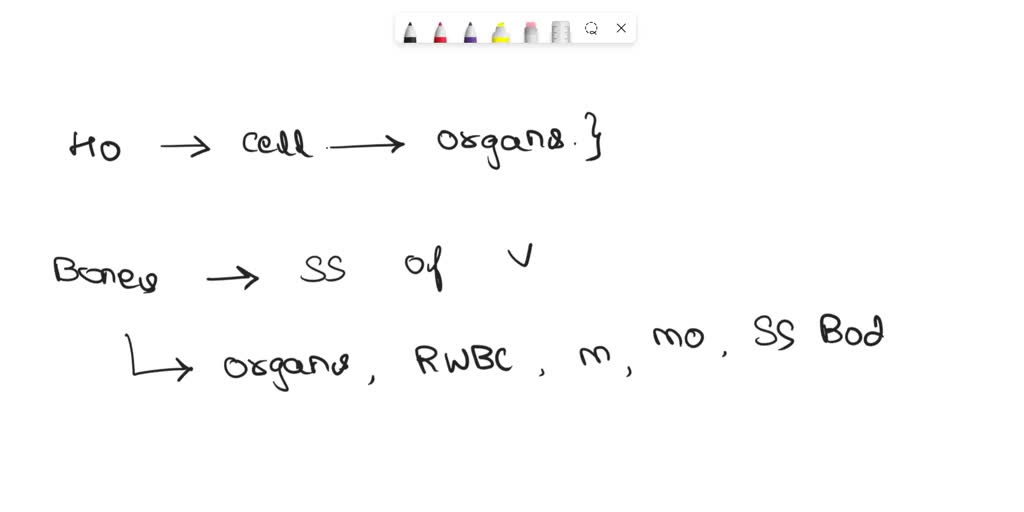 HO → cell → organs. }
Bones → SS of V
↳ organs, RWBC, m, mo, SS Bod